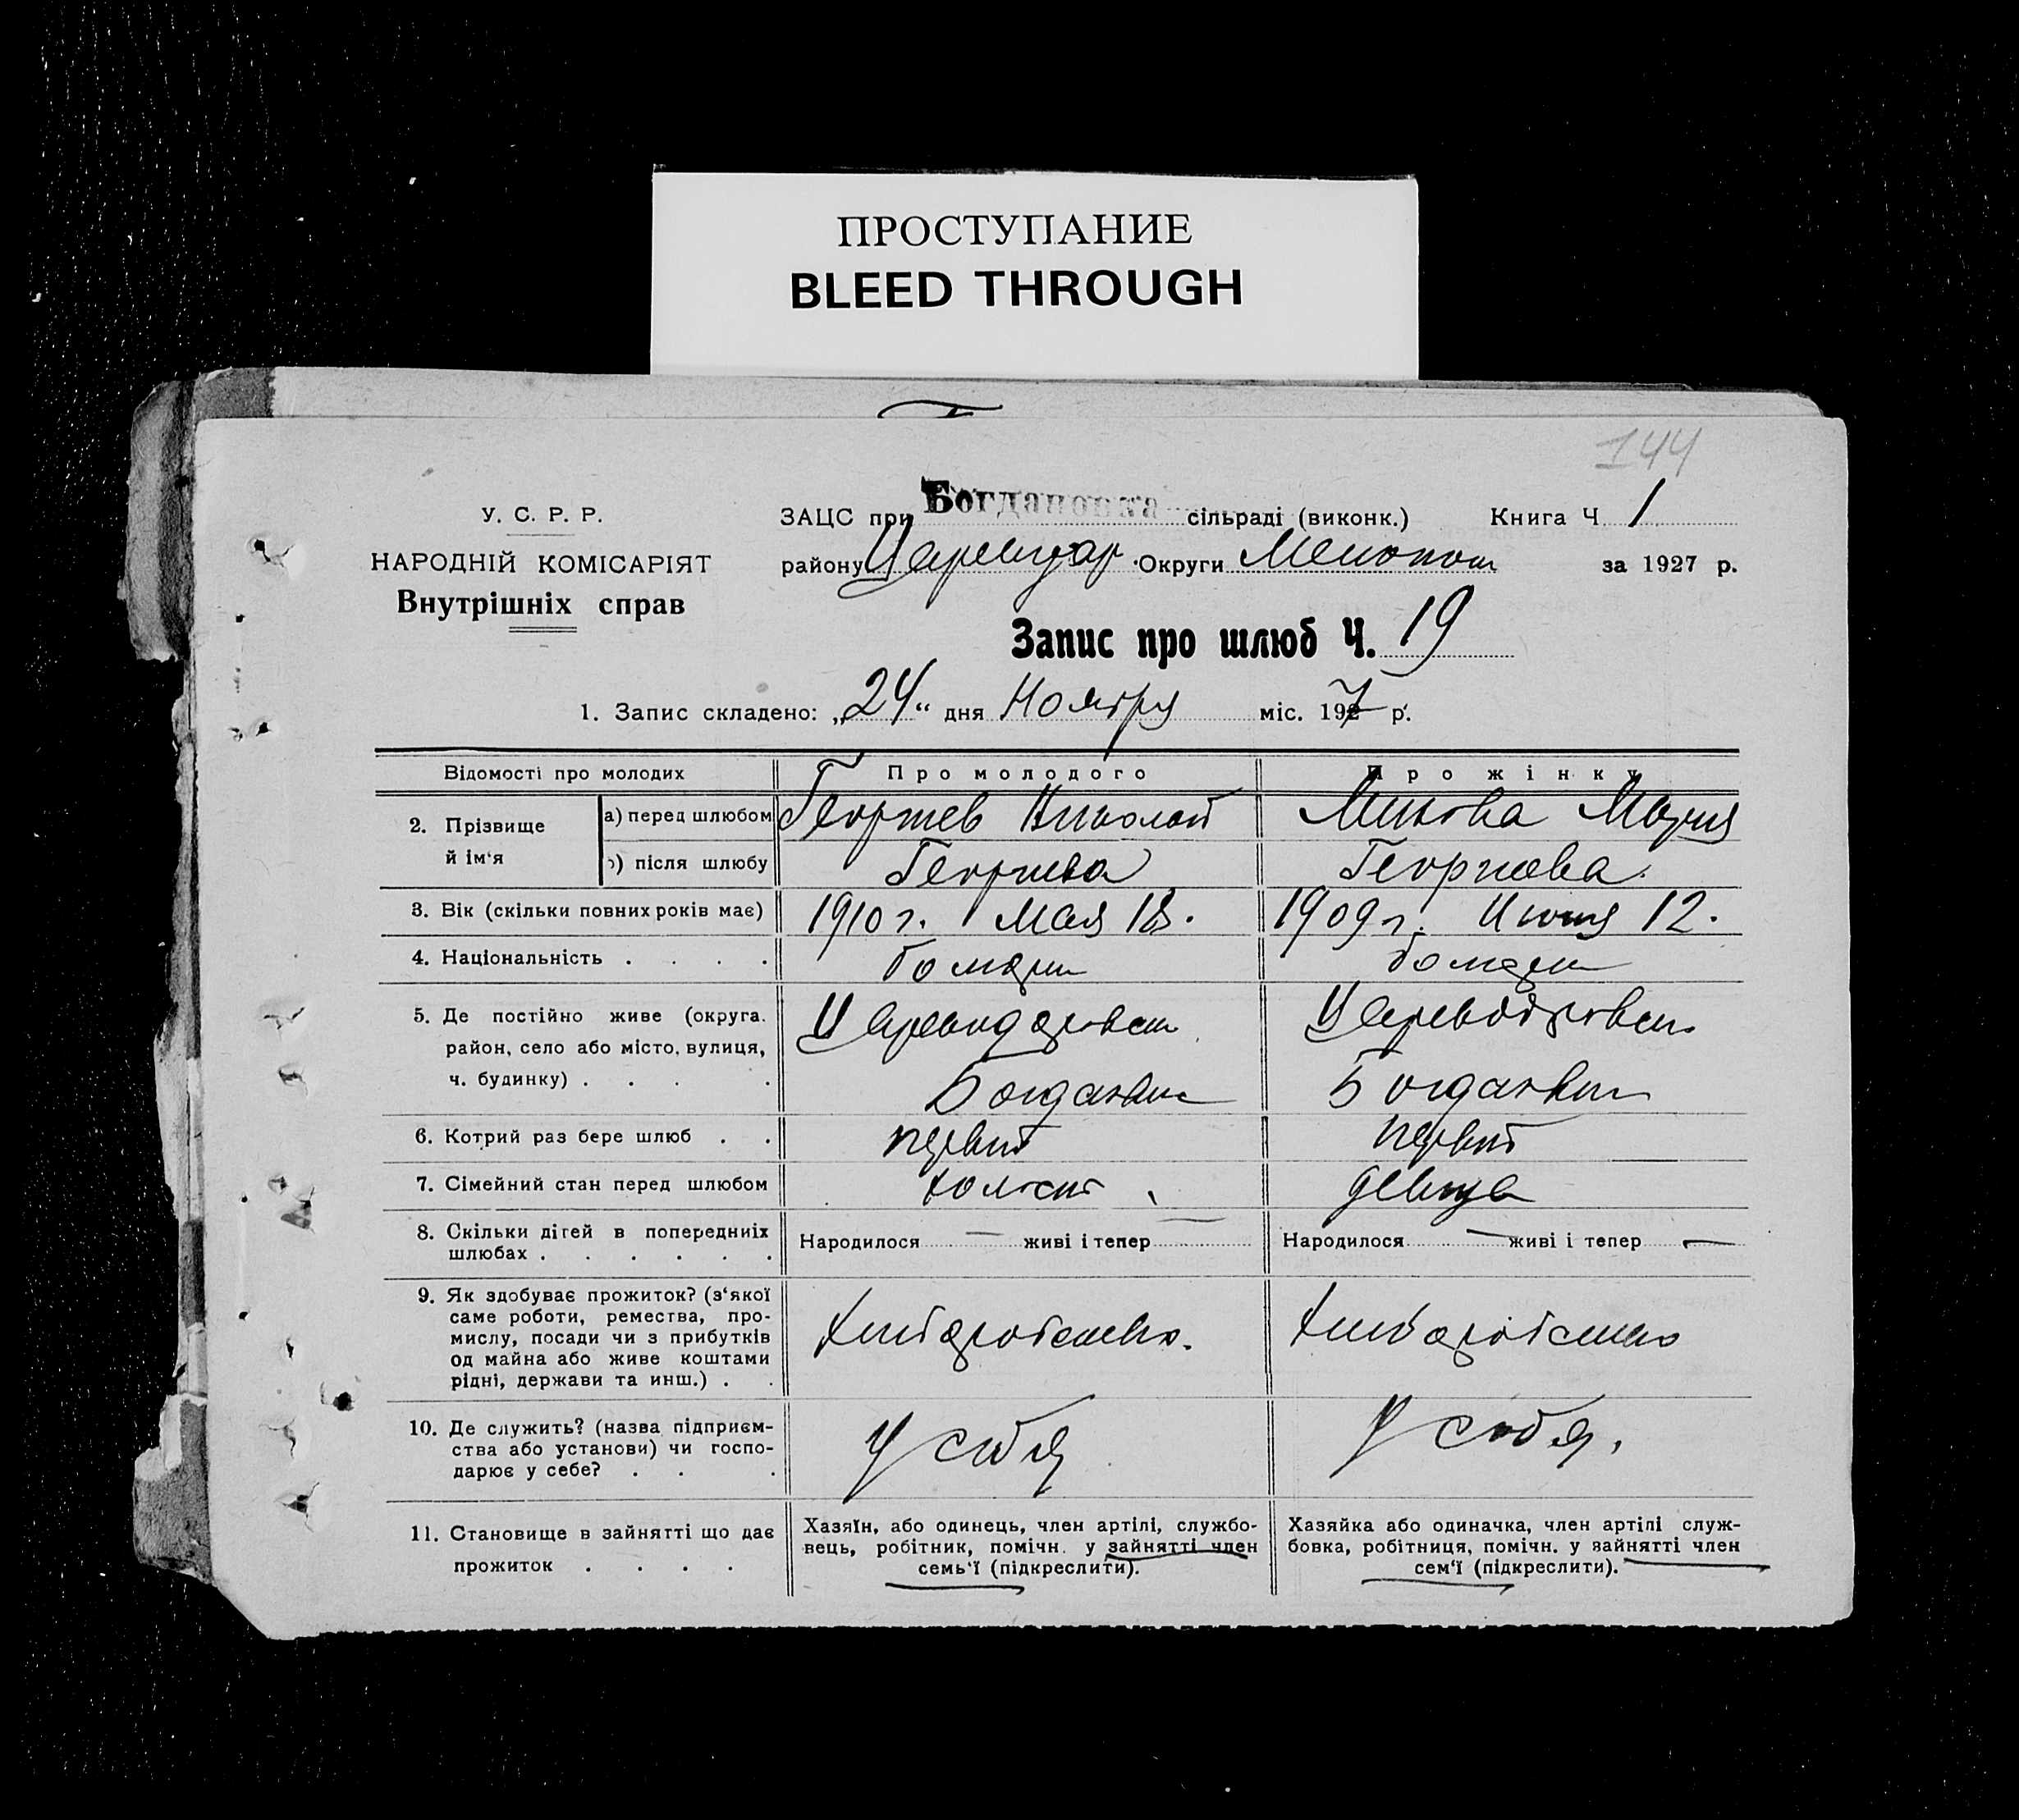 ПРОСТУПАНИЕ
BLEED THROUGH
144
У. С. Р. Р.
НАРОДНІЙ КОМІСАРІЯТ
Внутрішніх справ
ЗАЦС при Богдановка сільраді (виконк.) Книга Ч. 1
району Царевдар Округи Мелопол за 1927 р.
Запис про шлюб Ч. 19
1. Запис складено: „24“ дня Ноября міс. 1927 р.
Відомості про молодих
Про молодого
Про жінку
2. Прізвище й ім‘я
а) перед шлюбом
Георгиев Николай
Минова Мария
б) після шлюбу
Георгиева
Георгиева.
3. Вік (скільки повних років має)
1910 г. Мая 18.
1909 г. Июня 12.
4. Національність . . . .
болгари
болгари
5. Де постійно живе (округа.
район, село або місто, вулиця,
ч. будинку) . . . .
Царевод
Богдановки
Царевод
Богдановки
6. Котрий раз бере шлюб . .
первый
первый
7. Сімейний стан перед шлюбом
холост
девица
8. Скільки дітей в попередніїх
шлюбах . . . . . .
Народилося — живі і тепер —
Народилося — живі і тепер —
9. Як здобуває прожиток? (з‘якої
саме роботи, ремества, про-
мислу, посади чи з прибутків
од майна або живе коштами
рідні, держави та инш.) . .
Хлебопашество.
Хлебопашество
10. Де служить? (назва підприєм-
ства або установи) чи госпо-
дарює у себе? . . .
У себя
У себя.
11. Становище в зайнятті що дає
прожиток . . . .
Хазяїн, або одинець, член артілі, службо-
вець, робітник, помічн. у зайнятті член
семь‘ї (підкреслити).
Хазяйка або одиначка, член артілі служ-
бовка, робітниця, помічн. у зайнятті член
сем‘ї (підкреслити).